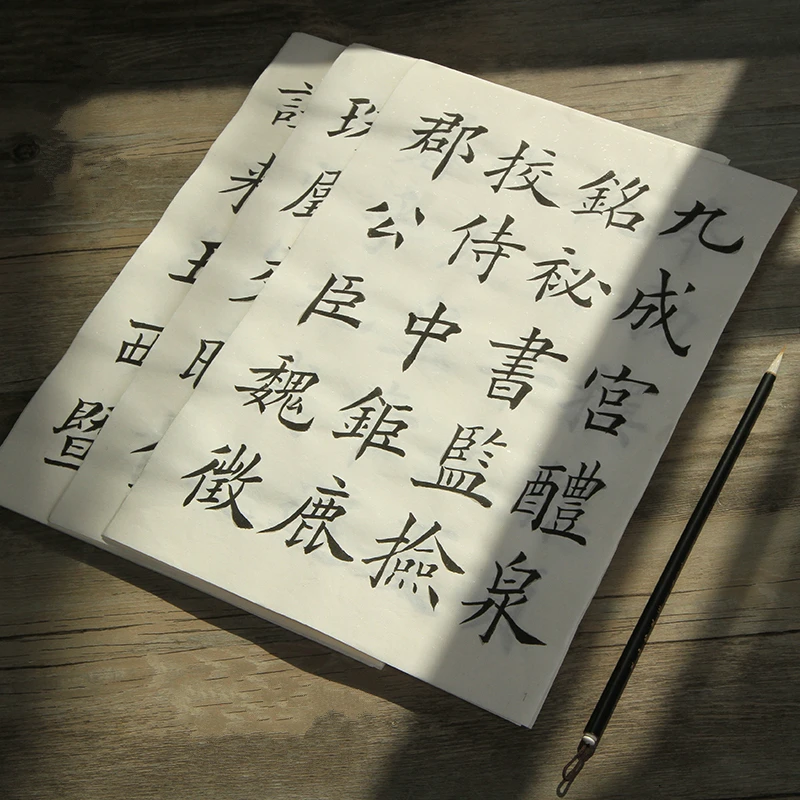 九成宮醴泉
銘祕書監撿
挍侍中鉅鹿
郡公臣魏徵
来王西暨